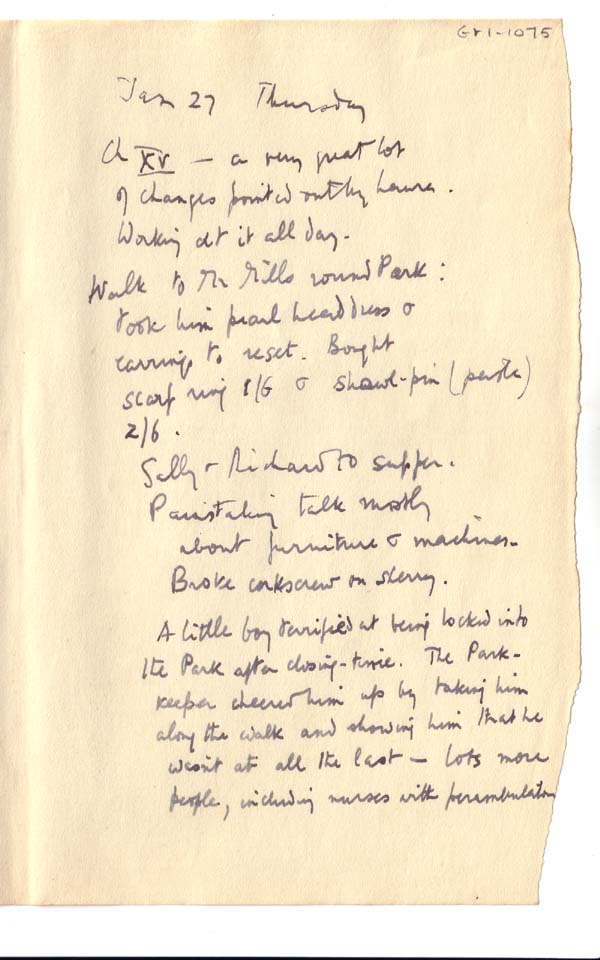 G&1-1075
Jan 27 Thursday
Ch XV — a very great lot
of changes pointed out by Laura.
Working at it all day.
Walk to Mr Mills round Park:
took him pearl headdress &
earrings to reset. Bought
scarf ring 1/6 & shawl-pin (paste)
2/6.
Sally & Richard to supper.
Painstaking talk mostly
about furniture & machines.
Broke corkscrew on sherry.
A little boy terrified at being locked into
the Park after closing-time. The Park-
keeper cheered him up by taking him
along the walk and showing him that he
wasn't at all the last — lots more
people, including nurses with perambulators